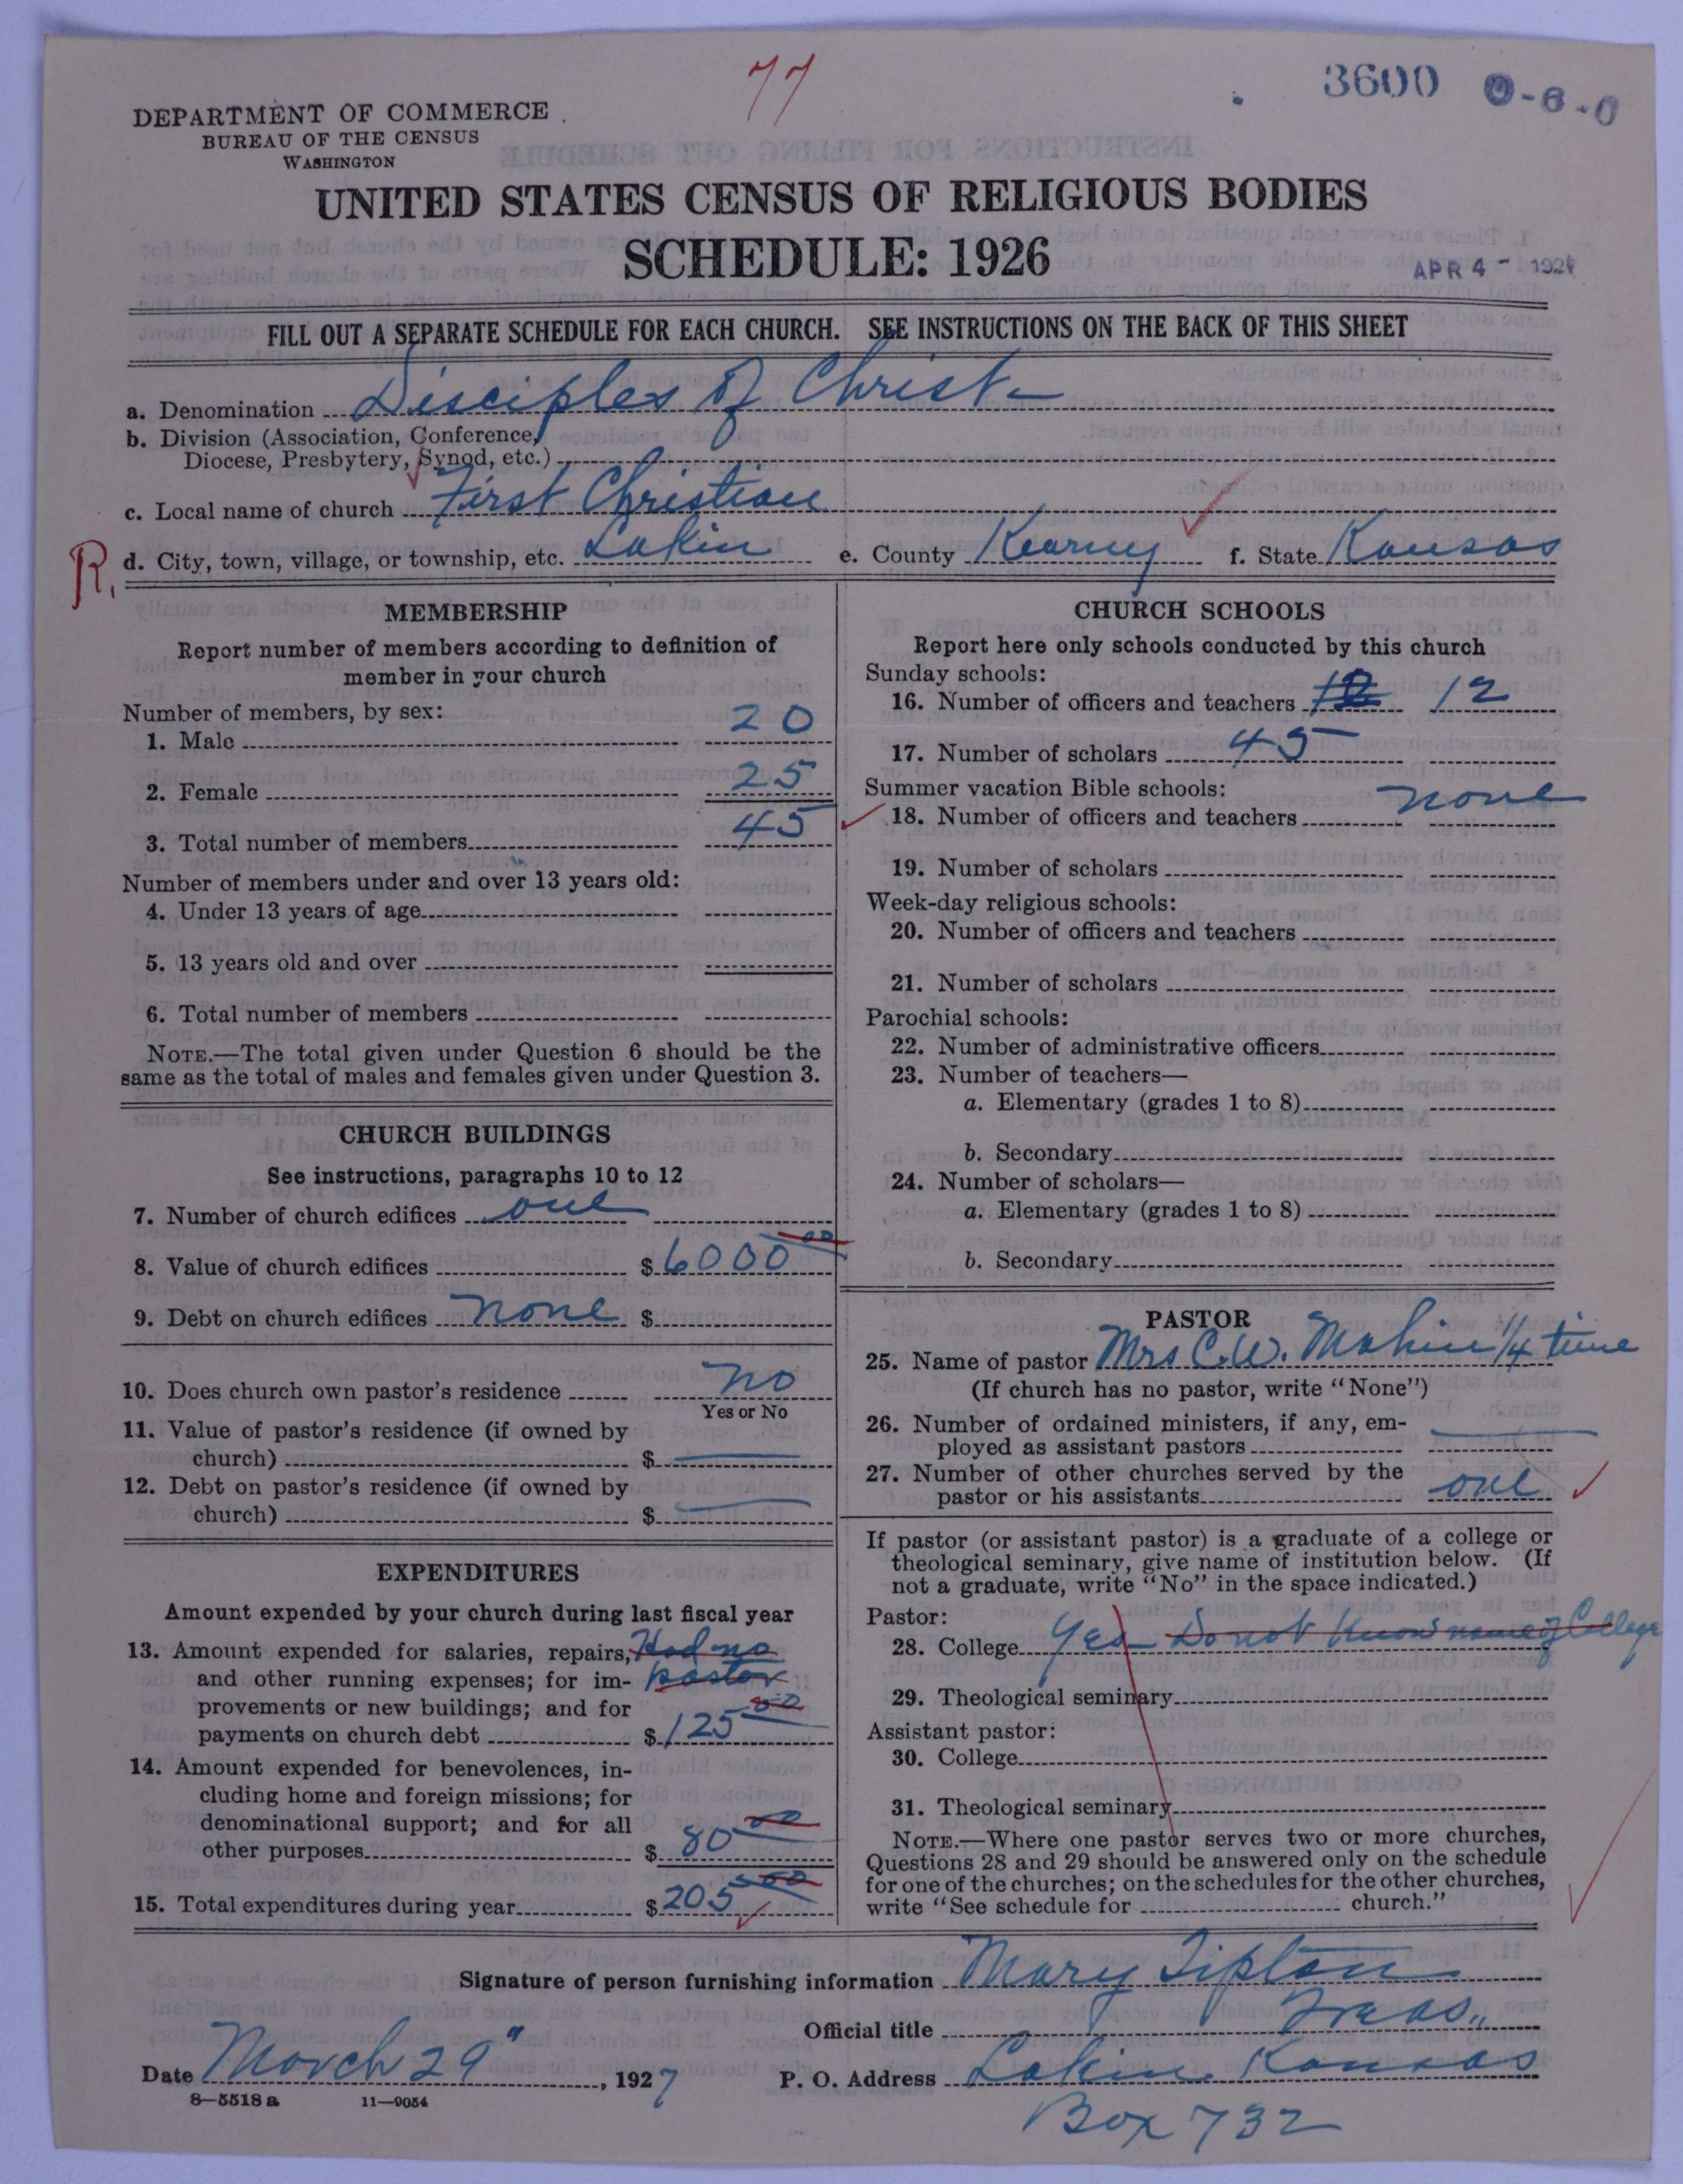 77
3600 0-6-0
DEPARTMENT OF COMMERCE
BUREAU OF THE CENSUS
WASHINGTON
UNITED STATES CENSUS OF RELIGIOUS BODIES
SCHEDULE: 1926
APR 4 - 192
FILL OUT A SEPARATE SCHEDULE FOR EACH CHURCH. SEE INSTRUCTIONS ON THE BACK OF THIS SHEET
a. Denomination Disciples of Christ
b. Division (Association, Conference,
Diocese, Presbytery, Synod, etc.)
c. Local name of church First Christian
R. d. City, town, village, or township, etc. Lakin e. County Kearny f. State Kansas
MEMBERSHIP
Report number of members according to definition of
member in your church
Number of members, by sex:
1. Male 20
2. Female 25
3. Total number of members 45
Number of members under and over 13 years old:
4. Under 13 years of age
5. 13 years old and over
6. Total number of members
NOTE.—The total given under Question 6 should be the
same as the total of males and females given under Question 3.
CHURCH BUILDINGS
See instructions, paragraphs 10 to 12
7. Number of church edifices one
8. Value of church edifices $ 6000 00
9. Debt on church edifices none $
10. Does church own pastor's residence no
Yes or No
11. Value of pastor's residence (if owned by
church) $ —
12. Debt on pastor's residence (if owned by
church) $ —
EXPENDITURES
Amount expended by your church during last fiscal year
13. Amount expended for salaries, repairs, Had no
and other running expenses; for im- pastor
provements or new buildings; and for
payments on church debt $ 125 00
14. Amount expended for benevolences, in-
cluding home and foreign missions; for
denominational support; and for all
other purposes $ 80 00
15. Total expenditures during year $ 205 00
CHURCH SCHOOLS
Report here only schools conducted by this church
Sunday schools:
16. Number of officers and teachers 12 12
17. Number of scholars 45
Summer vacation Bible schools:
18. Number of officers and teachers none
19. Number of scholars
Week-day religious schools:
20. Number of officers and teachers
21. Number of scholars
Parochial schools:
22. Number of administrative officers
23. Number of teachers—
a. Elementary (grades 1 to 8)
b. Secondary
24. Number of scholars—
a. Elementary (grades 1 to 8)
b. Secondary
PASTOR
25. Name of pastor Mrs C.W. Mahin 1/4 time
(If church has no pastor, write "None")
26. Number of ordained ministers, if any, em-
ployed as assistant pastors —
27. Number of other churches served by the
pastor or his assistants one
If pastor (or assistant pastor) is a graduate of a college or
theological seminary, give name of institution below. (If
not a graduate, write "No" in the space indicated.)
Pastor:
28. College Yes – Do not know name of College
29. Theological seminary
Assistant pastor:
30. College
31. Theological seminary
NOTE.—Where one pastor serves two or more churches,
Questions 28 and 29 should be answered only on the schedule
for one of the churches; on the schedules for the other churches,
write "See schedule for church."
Signature of person furnishing information Mary Tipton
Official title Treas.,
Date March 29", 1927 P. O. Address Lakin Kansas
8—5518 a 11—9054
Box 732